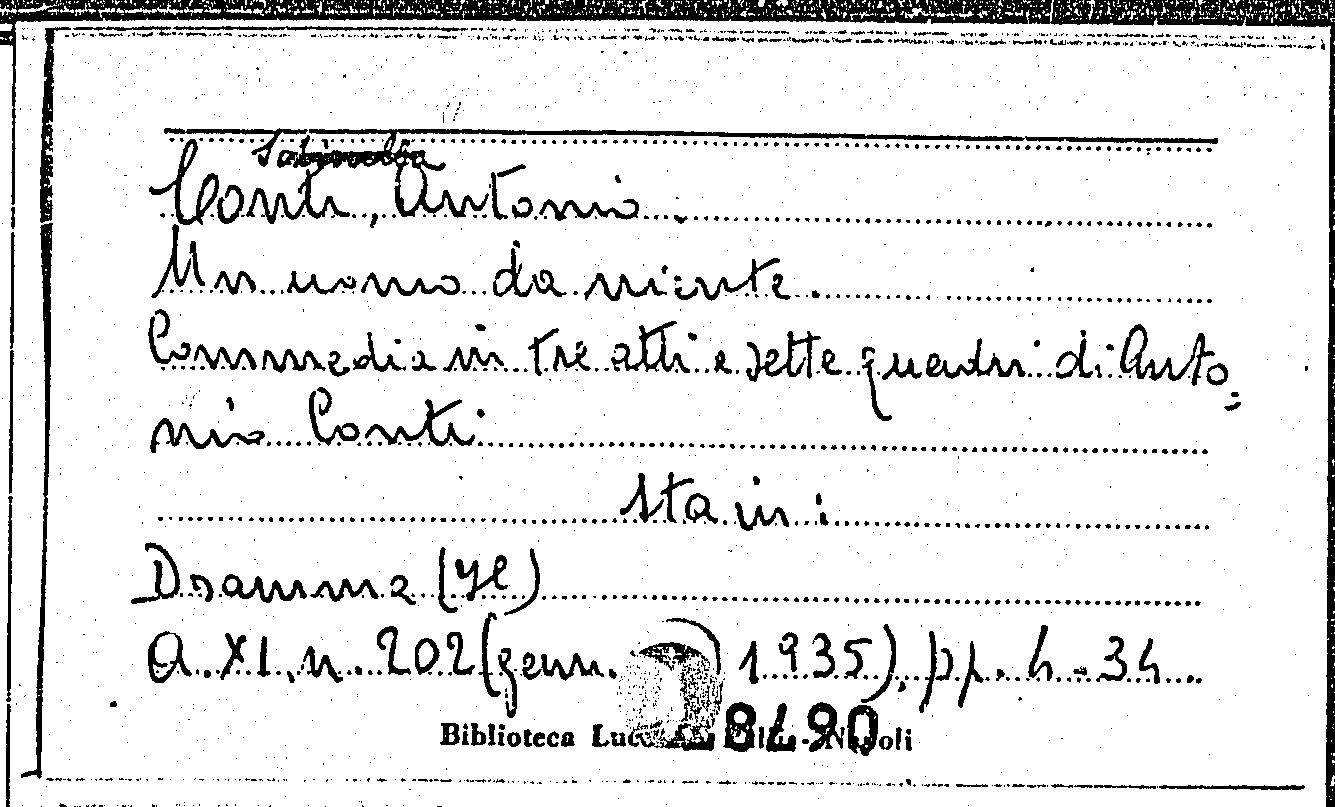 Conti, Antonio.
Un uomo da niente.
Commedia in tre atti e sette quadri di Anto=
nio Conti
sta in:
Dramma (Il)
A. XI, n. 202 (genn. 1935), pp. 4-34.
Biblioteca - Napoli